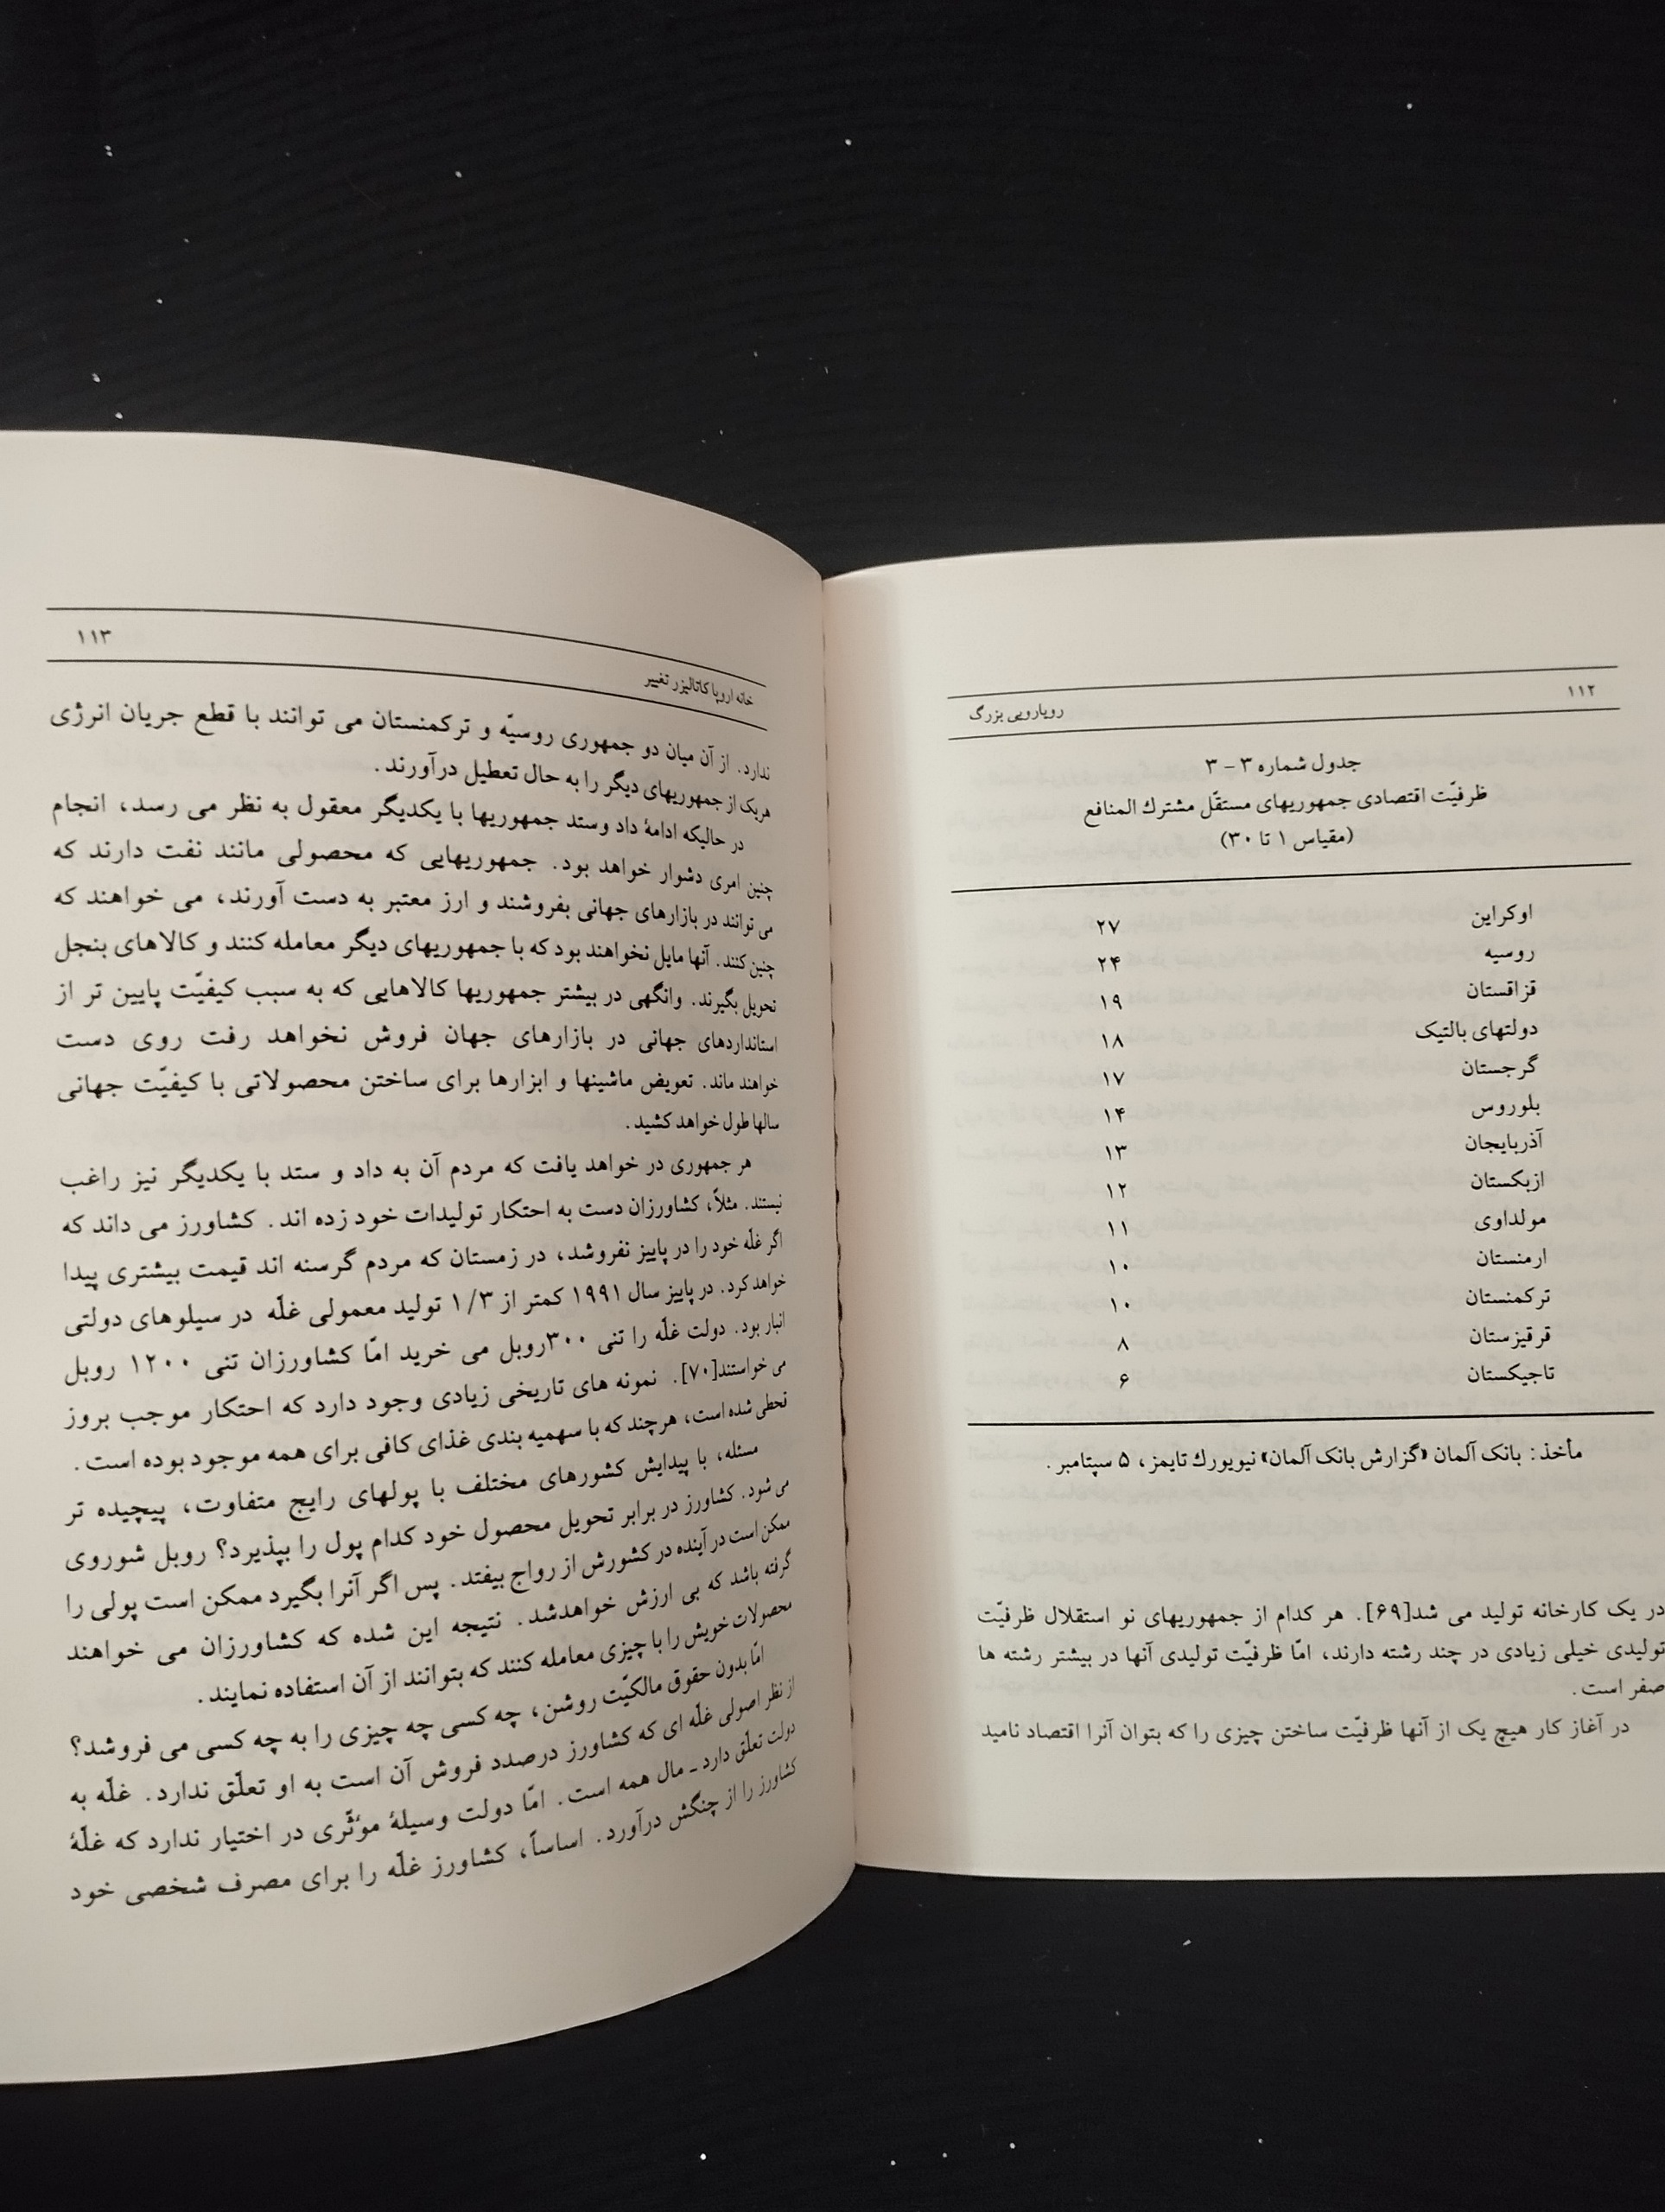 ۱۱۲
رویارویی بزرگ
جدول شماره ۳ - ۳
ظرفیّت اقتصادی جمهوریهای مستقّل مشترك المنافع
(مقیاس ۱ تا ۳۰)
اوکراین ۲۷
روسیه ۲۴
قزاقستان ۱۹
دولتهای بالتیک ۱۸
گرجستان ۱۷
بلوروس ۱۴
آذربایجان ۱۳
ازبکستان ۱۲
مولداوی ۱۱
ارمنستان ۱۰
ترکمنستان ۱۰
قرقیزستان ۸
تاجیکستان ۶
مأخذ: بانک آلمان «گزارش بانک آلمان» نیویورك تایمز، ۵ سپتامبر.
در یک کارخانه تولید می شد[۶۹]. هر کدام از جمهوریهای نو استقلال ظرفیّت
تولیدی خیلی زیادی در چند رشته دارند، امّا ظرفیّت تولیدی آنها در بیشتر رشته ها
صفر است.
در آغاز کار هیچ یک از آنها ظرفیّت ساختن چیزی را که بتوان آنرا اقتصاد نامید
خانه اروپا کاتالیزر تغییر
۱۱۳
ندارد. از آن میان دو جمهوری روسیّه و ترکمنستان می توانند با قطع جریان انرژی
هریک از جمهوریهای دیگر را به حال تعطیل درآورند.
در حالیکه ادامهٔ داد وستد جمهوریها با یکدیگر معقول به نظر می رسد، انجام
چنین امری دشوار خواهد بود. جمهوریهایی که محصولی مانند نفت دارند که
می توانند در بازارهای جهانی بفروشند و ارز معتبر به دست آورند، می خواهند که
چنین کنند. آنها مایل نخواهند بود که با جمهوریهای دیگر معامله کنند و کالاهای بنجل
تحویل بگیرند. وانگهی در بیشتر جمهوریها کالاهایی که به سبب کیفیّت پایین تر از
استانداردهای جهانی در بازارهای جهان فروش نخواهد رفت روی دست
خواهند ماند. تعویض ماشینها و ابزارها برای ساختن محصولاتی با کیفیّت جهانی
سالها طول خواهد کشید.
هر جمهوری در خواهد یافت که مردم آن به داد و ستد با یکدیگر نیز راغب
نیستند. مثلاً، کشاورزان دست به احتکار تولیدات خود زده اند. کشاورز می داند که
اگر غلّه خود را در پاییز نفروشد، در زمستان که مردم گرسنه اند قیمت بیشتری پیدا
خواهد کرد. در پاییز سال ۱۹۹۱ کمتر از ۱/۳ تولید معمولی غلّه در سیلوهای دولتی
انبار بود. دولت غلّه را تنی ۳۰۰روبل می خرید امّا کشاورزان تنی ۱۲۰۰ روبل
می خواستند[۷۰]. نمونه های تاریخی زیادی وجود دارد که احتکار موجب بروز
قحطی شده است، هرچند که با سهمیه بندی غذای کافی برای همه موجود بوده است.
مسئله، با پیدایش کشورهای مختلف با پولهای رایج متفاوت، پیچیده تر
می شود. کشاورز در برابر تحویل محصول خود کدام پول را بپذیرد؟ روبل شوروی
ممکن است در آینده در کشورش از رواج بیفتد. پس اگر آنرا بگیرد ممکن است پولی را
گرفته باشد که بی ارزش خواهدشد. نتیجه این شده که کشاورزان می خواهند
محصولات خویش را با چیزی معامله کنند که بتوانند از آن استفاده نمایند.
امّا بدون حقوق مالکیّت روشن، چه کسی چه چیزی را به چه کسی می فروشد؟
از نظر اصولی غلّه ای که کشاورز درصدد فروش آن است به او تعلّق ندارد. غلّه به
دولت تعلّق دارد ـ مال همه است. امّا دولت وسیلهٔ مؤثّری در اختیار ندارد که غلّهٔ
کشاورز را از چنگش درآورد. اساساً، کشاورز غلّه را برای مصرف شخصی خود